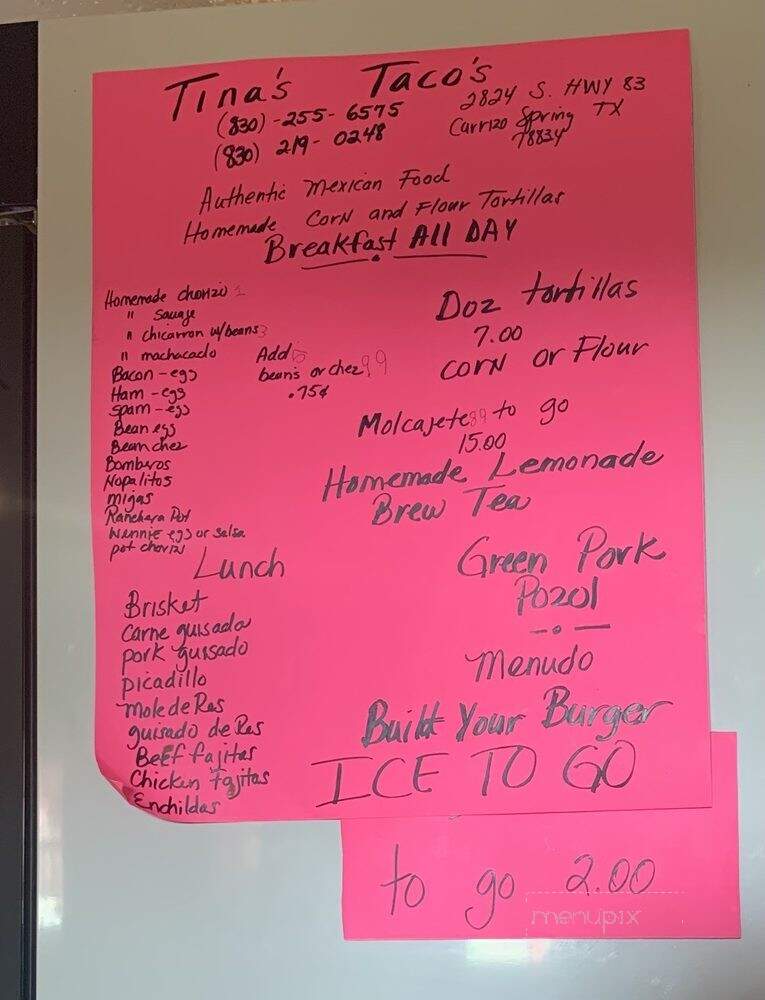 Tina's Taco's
(830)-255-6575
(830) 219-0248
2824 S. HWY 83
Carrizo Spring TX
78834
Authentic Mexican Food
Homemade Corn and Flour Tortillas
Breakfast All DAY
Homemade chorizo
" Sausage
" chicarron w/beans
" machacado
Bacon - egg
Ham - egg
Spam - egg
Bean egg
Bean chez
Bomberos
Nopalitos
migas
Ranchera Pot
Wennie egg or salsa
pot chorizo
Add
beans or chez
.75¢
Doz tortillas
7.00
corn or Flour
Molcajete to go
15.00
Homemade Lemonade
Brew Tea
Green Pork
Pozol
Menudo
Build Your Burger
ICE TO GO
Lunch
Brisket
Carne guisada
pork guisado
picadillo
Mole de Res
guisado de Res
Beef fajitas
Chicken Fajitas
Enchildas
to go 2.00
menupix